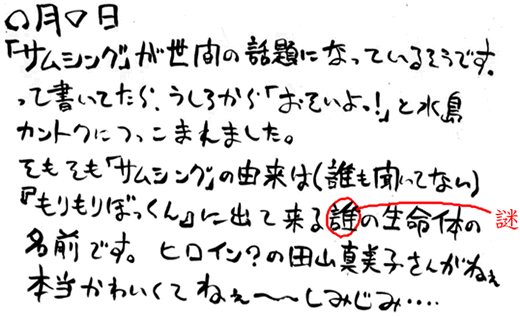 〇月〇日
「サムシング」が世間の話題になっているそうです。
って書いてたら、うしろから「おそいよっ!」と水島
カントクにつっこまれました。
そもそも「サムシング」の由来は(誰も聞いてない)
『もりもりぼっくん』に出て来る誰の生命体の
謎
名前です。ヒロイン?の田山真美子さんがねぇ
本当かわいくてねぇ〜〜しみじみ‥‥